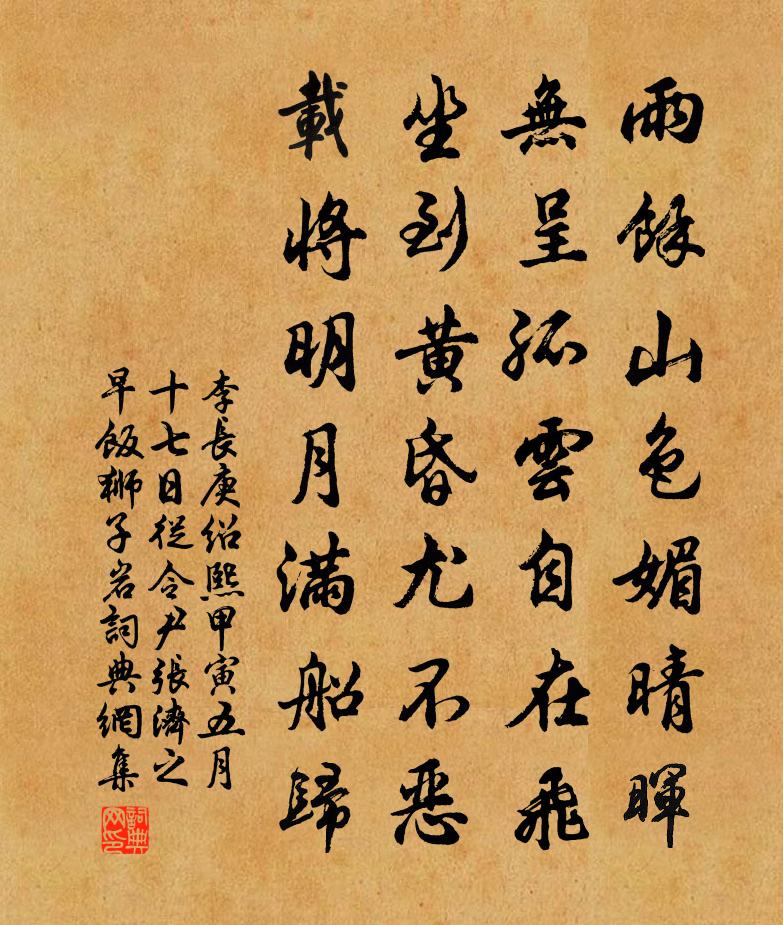 雨餘山色媚晴暉
無呈孤雲自在飛
坐到黃昏尤不惡
載將明月滿船歸
李長庚紹熙甲寅五月
十七日從令尹張濟之
早飯獅子岩詞典網集
詞典网印